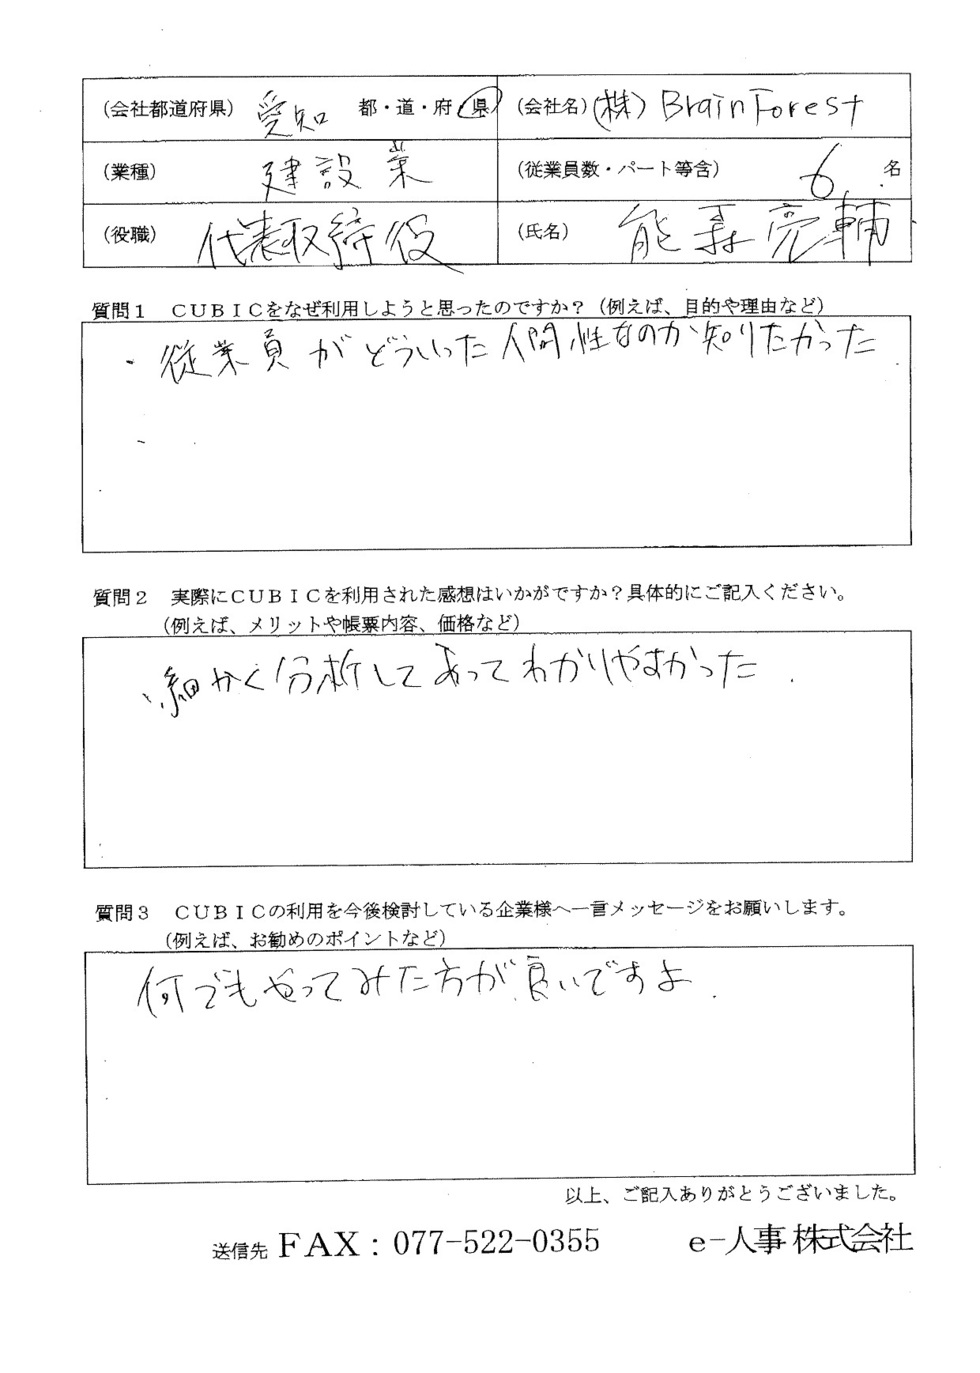 (会社都道府県) 愛知 都・道・府・県 (会社名) (株) BrainForest
(業種) 建設業 (従業員数・パート等含) 6 名
(役職) 代表取締役 (氏名) 能森亮輔
質問１　ＣＵＢＩＣをなぜ利用しようと思ったのですか？（例えば、目的や理由など）
・従業員がどういった人間性なのか知りたかった
質問２　実際にＣＵＢＩＣを利用された感想はいかがですか？具体的にご記入ください。
（例えば、メリットや帳票内容、価格など）
細かく分析してあってわかりやすかった.
質問３　ＣＵＢＩＣの利用を今後検討している企業様へ一言メッセージをお願いします。
（例えば、お勧めのポイントなど）
何でもやってみた方が良いですよ.
以上、ご記入ありがとうございました。
送信先 ＦＡＸ：077-522-0355 e-人事 株式会社